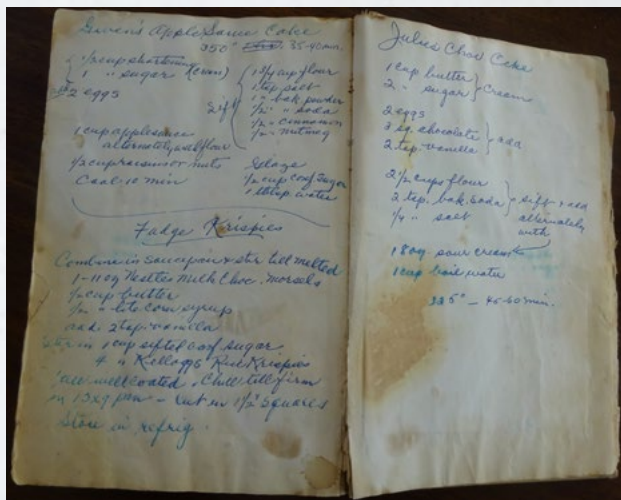 Gwen's Apple Sauce Cake
350° 35-40 min.
1/2 cup shortening
1 " sugar (cream)
2 eggs
Sift
1 3/4 cup flour
1 tsp salt
" bak. powder
1/2 " soda
1/2 " cinnamon
1/2 " nutmeg
1 cup applesauce
alternately with flour
1/2 cup raisins or nuts
Cool 10 min
Glaze
1/2 cup conf. sugar
water
Fudge Krispies
Combine in saucepan & stir till melted
1-11 oz Nestles Milk Choc. morsels
1/2 cup butter
1/2 " lite corn syrup
add 2 tsp. vanilla
Stir in 1 cup sifted conf sugar
4 " Kelloggs Rice Krispies
well coated. Chill till firm
in 13x9 pan - Cut in 1 1/2" squares
Store in refrig
Julies Choc Cake
1 cup butter
2 " sugar
Cream
2 eggs
3 sq. chocolate
2 tsp. vanilla
add
2 1/2 cups flour
2 tsp. bak. soda
1/4 " salt
sift & add
alternately
with
1 8 oz. sour cream
1 cup boil water
325° - 45-60 min.